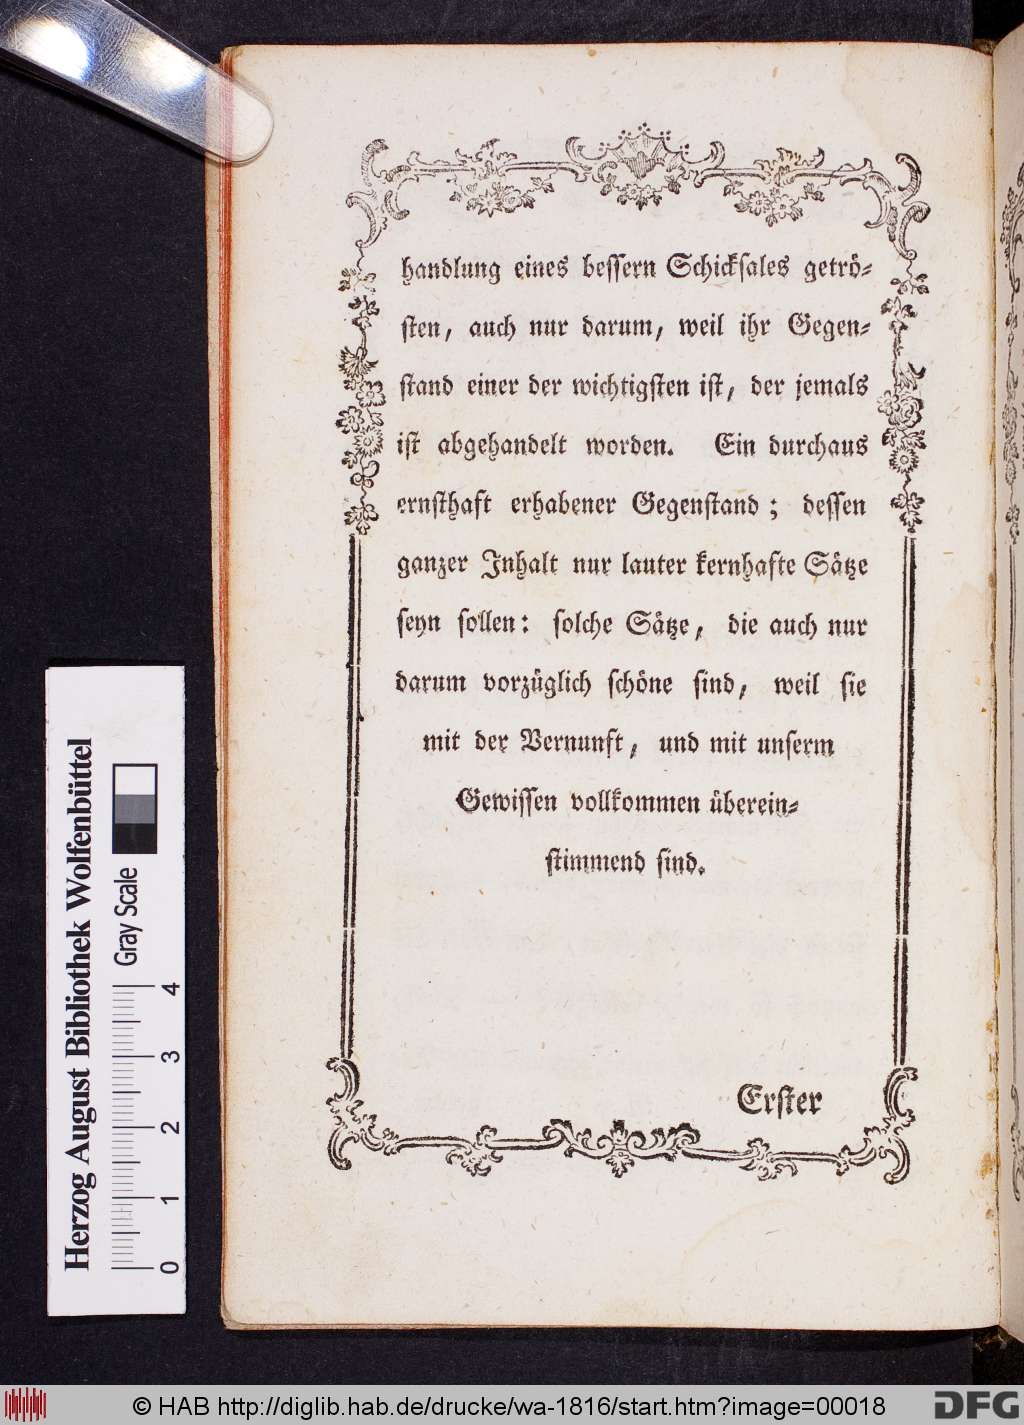 handlung eines bessern Schicksales getrö-
sten, auch nur darum, weil ihr Gegen-
stand einer der wichtigsten ist, der jemals
ist abgehandelt worden. Ein durchaus
ernsthaft erhabener Gegenstand; dessen
ganzer Inhalt nur lauter kernhafte Sätze
seyn sollen: solche Sätze, die auch nur
darum vorzüglich schöne sind, weil sie
mit der Vernunft, und mit unserm
Gewissen vollkommen überein-
stimmend sind.
Erster
Herzog August Bibliothek Wolfenbüttel
Gray Scale
0 1 2 3 4
© HAB http://diglib.hab.de/drucke/wa-1816/start.htm?image=00018
DFG